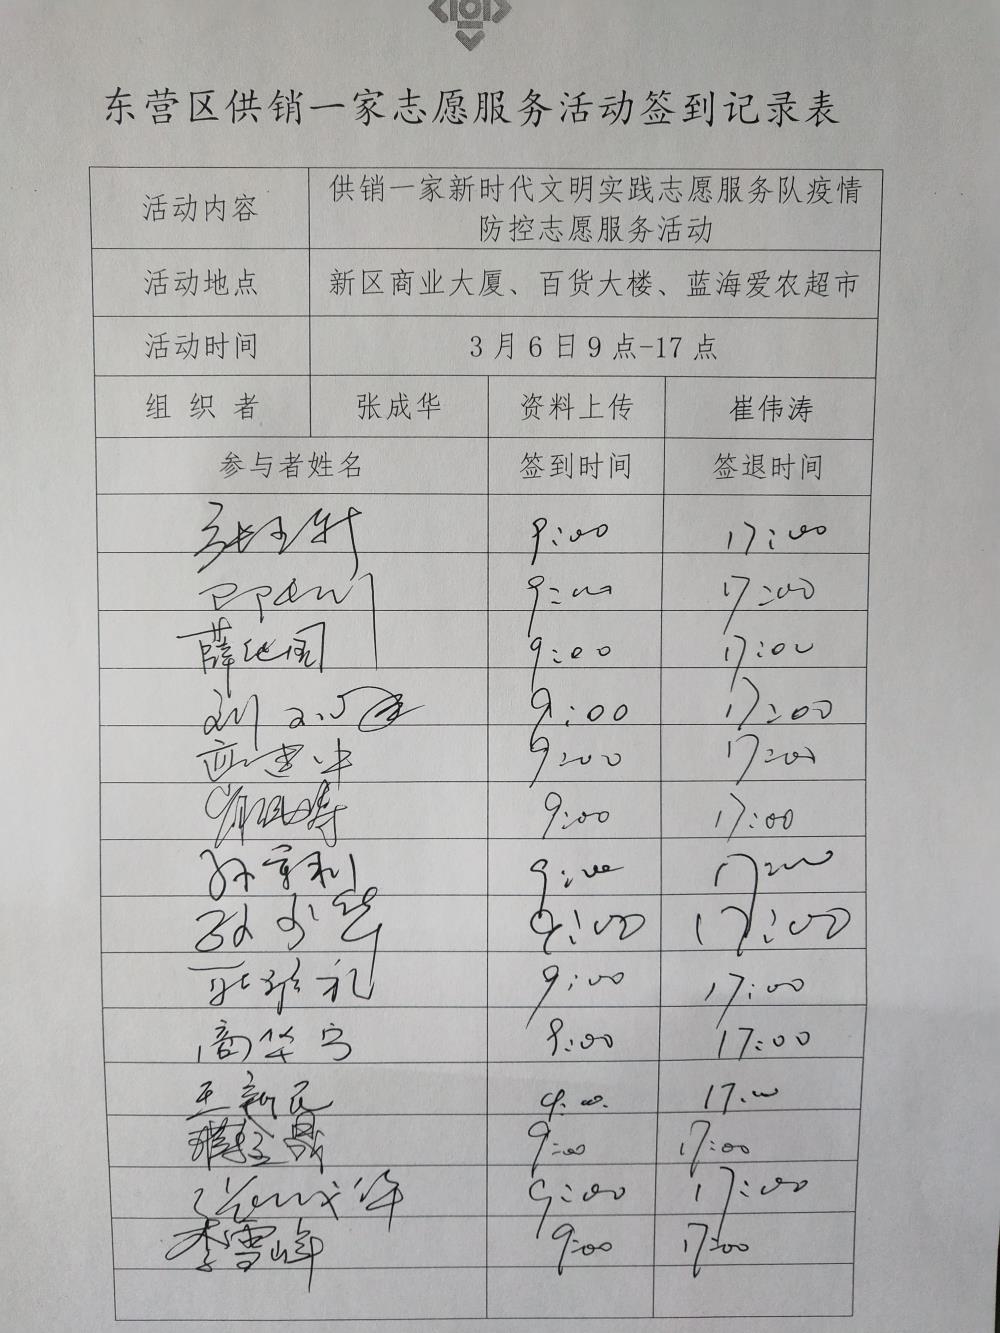 东营区供销一家志愿服务活动签到记录表
活动内容 供销一家新时代文明实践志愿服务队疫情
防控志愿服务活动
活动地点 新区商业大厦、百货大楼、蓝海爱农超市
活动时间 3月6日9点-17点
组织者 张成华 资料上传 崔伟涛
参与者姓名 签到时间 签退时间
9:00 17:00
9:00 17:00
9:00 17:00
刘 9:00 17:00
9:00 17:00
9:00 17:00
孙 9:00 17:00
9:00 17:00
9:00 17:00
商华宁 9:00 17:00
王新民 9:00 17:00
9:00 17:00
张成华 9:00 17:00
李雪峰 9:00 17:00